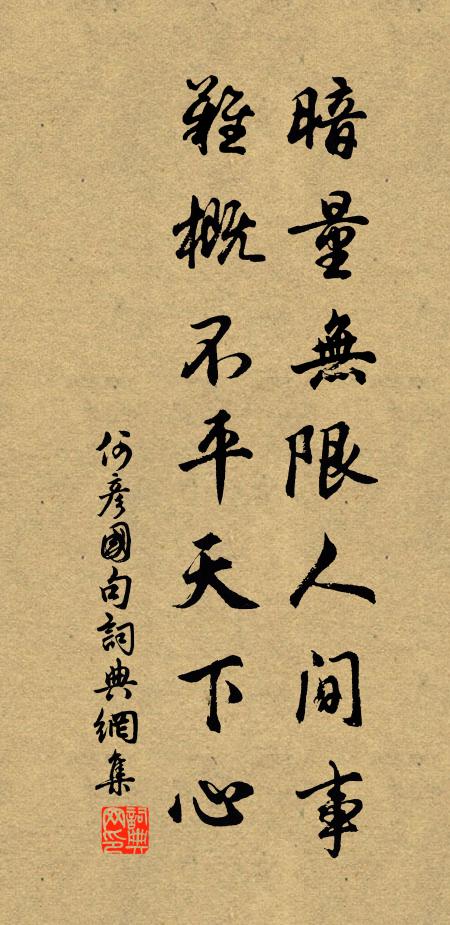 暗量無限人間事
難概不平天下心
何彥國句詞典網集
詞典网印